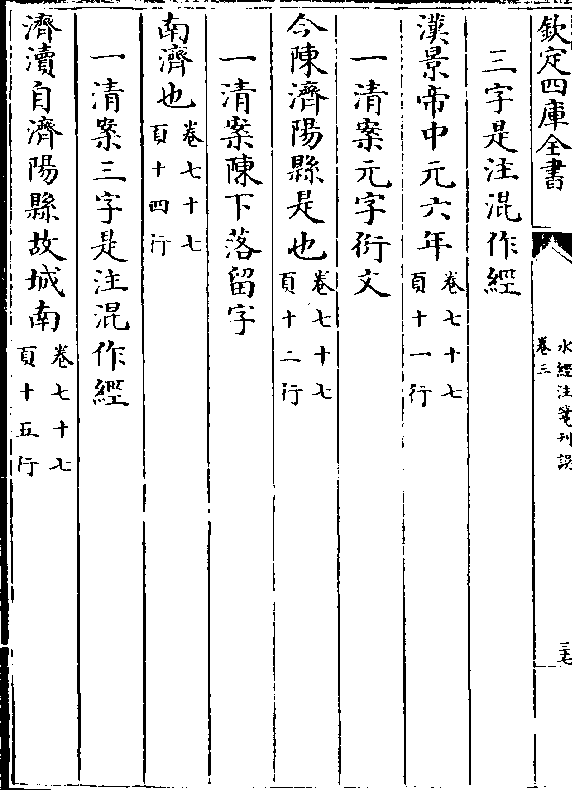 欽定四庫全書
水經注箋刊誤
卷三
三七
三字是注混作經
漢景帝中元六年卷七十七頁十一行
一清案元字衍文
今陳濟陽縣是也卷七十七頁十二行
一清案陳下落留字
南濟也卷七十七頁十四行
一清案三字是注混作經
濟瀆自濟陽縣故城南卷七十七頁十五行